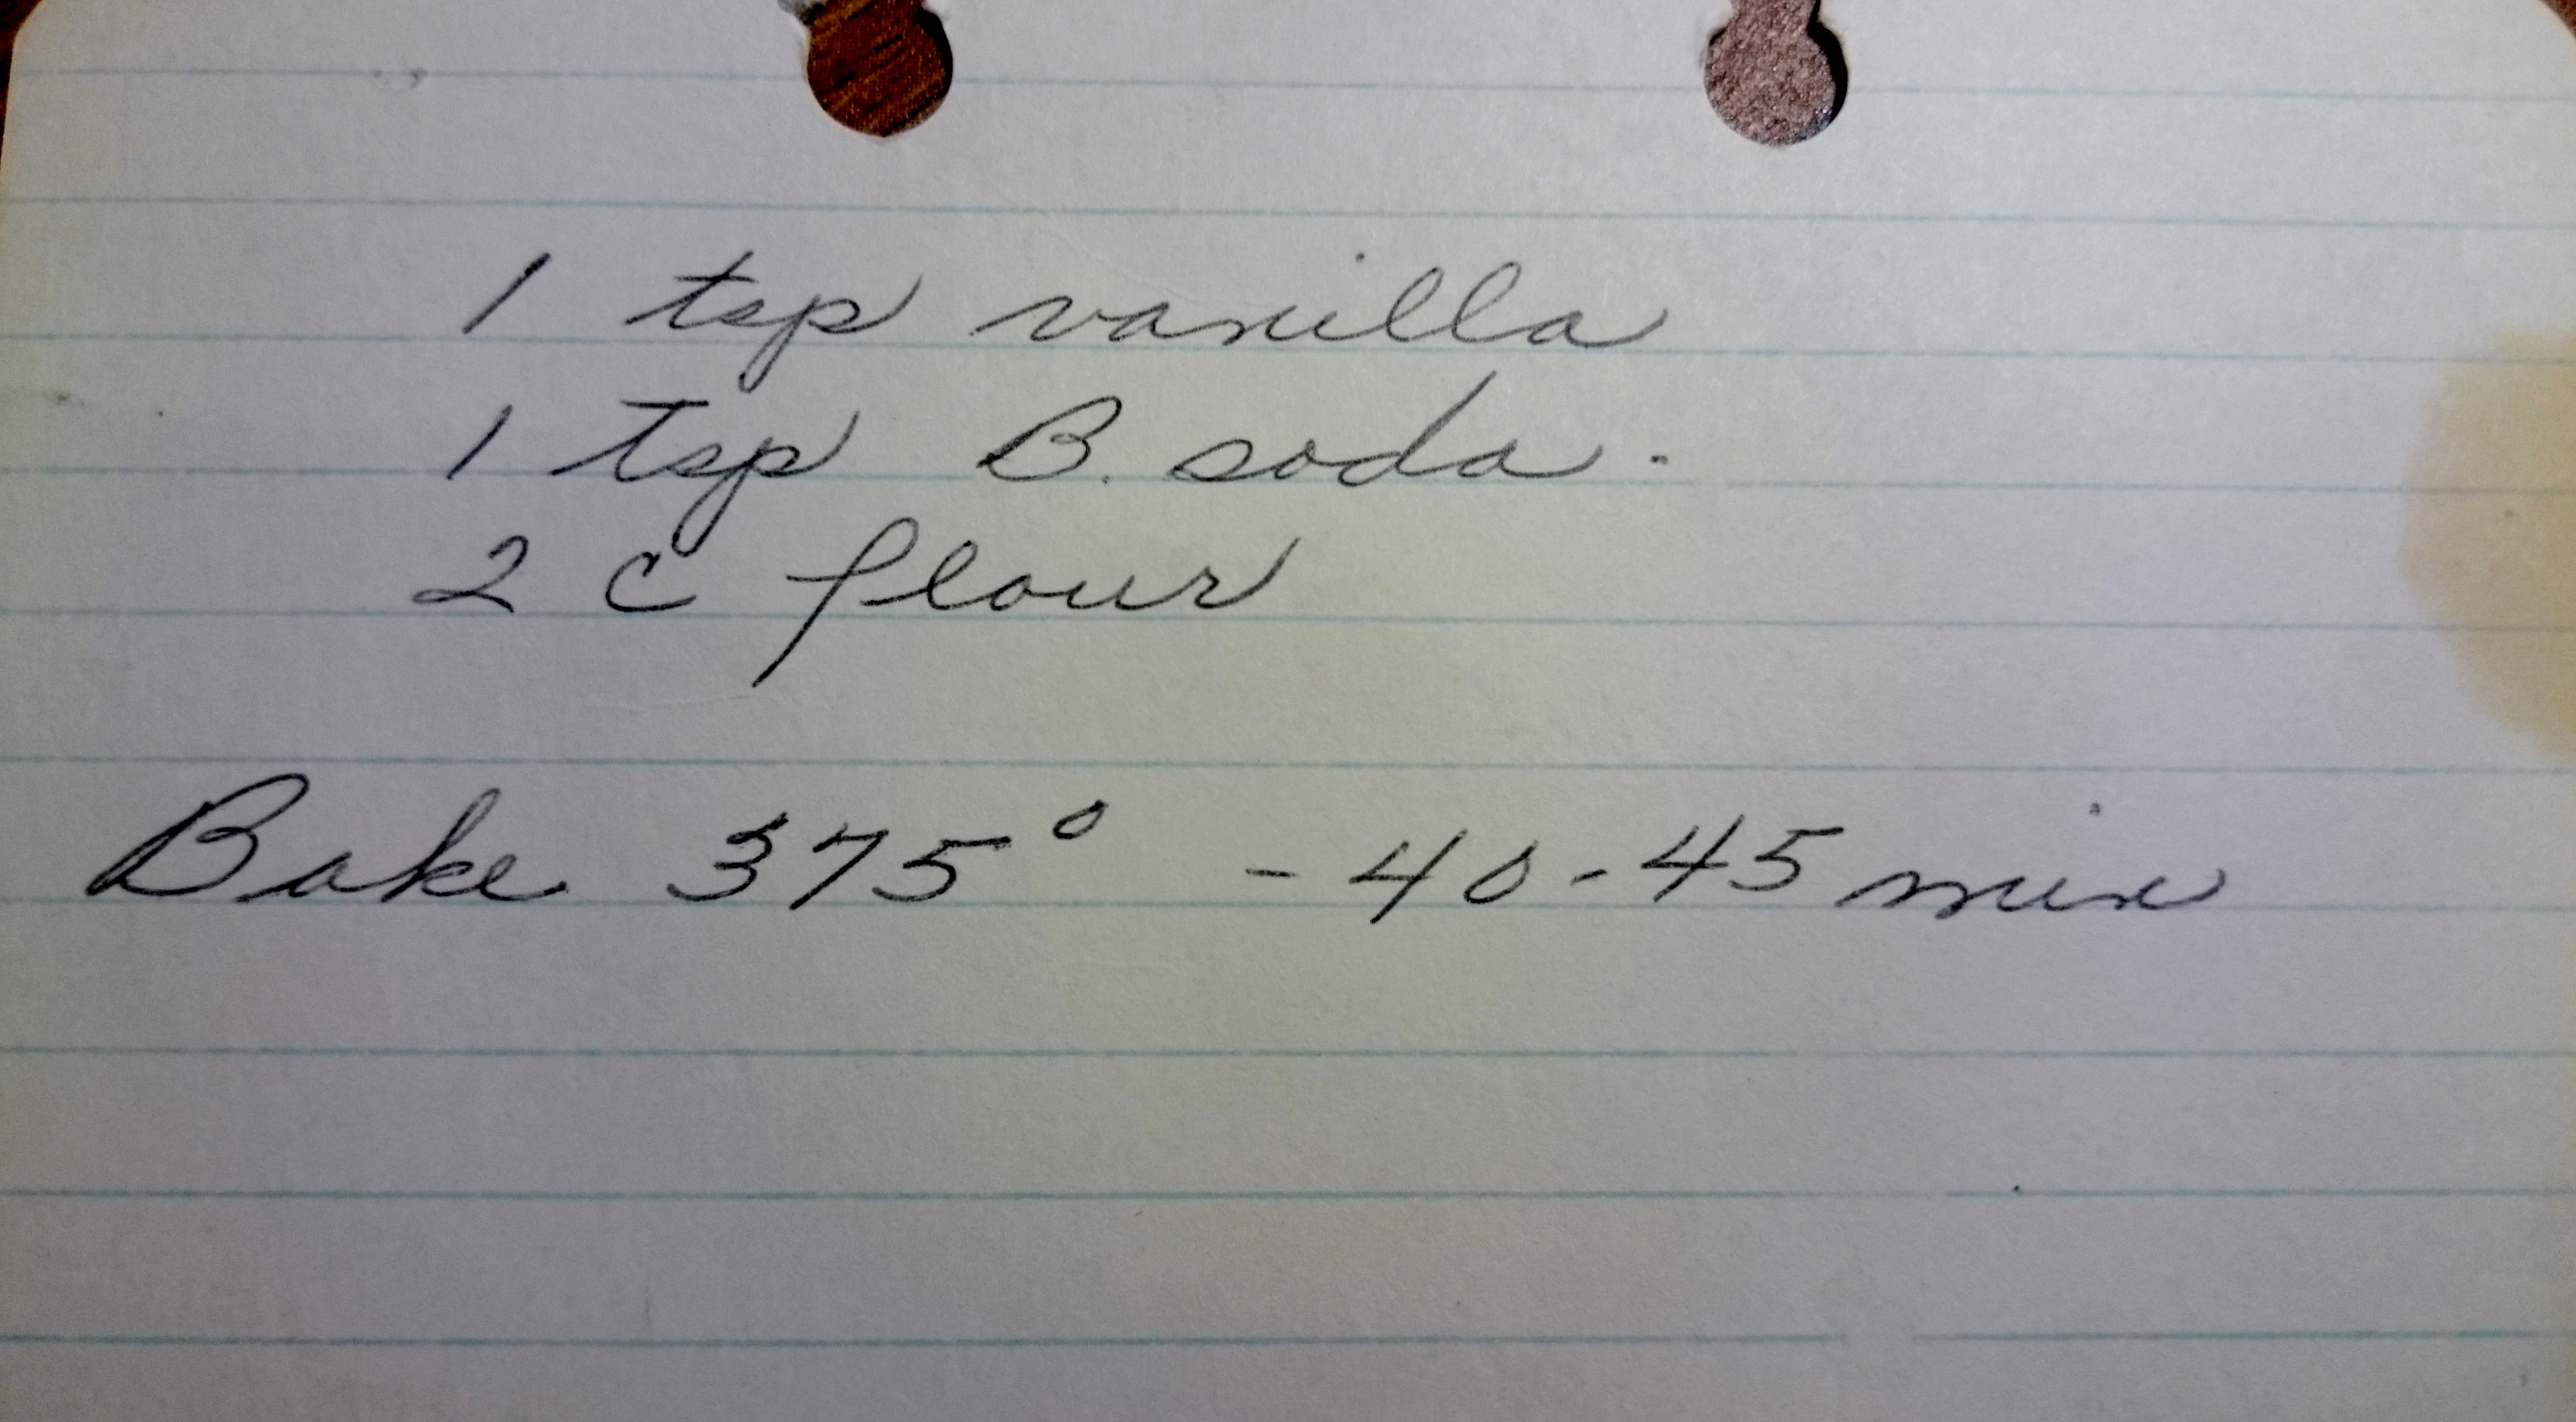 1 tsp vanilla
1 tsp B. soda.
2 c flour
Bake 375° - 40-45 min